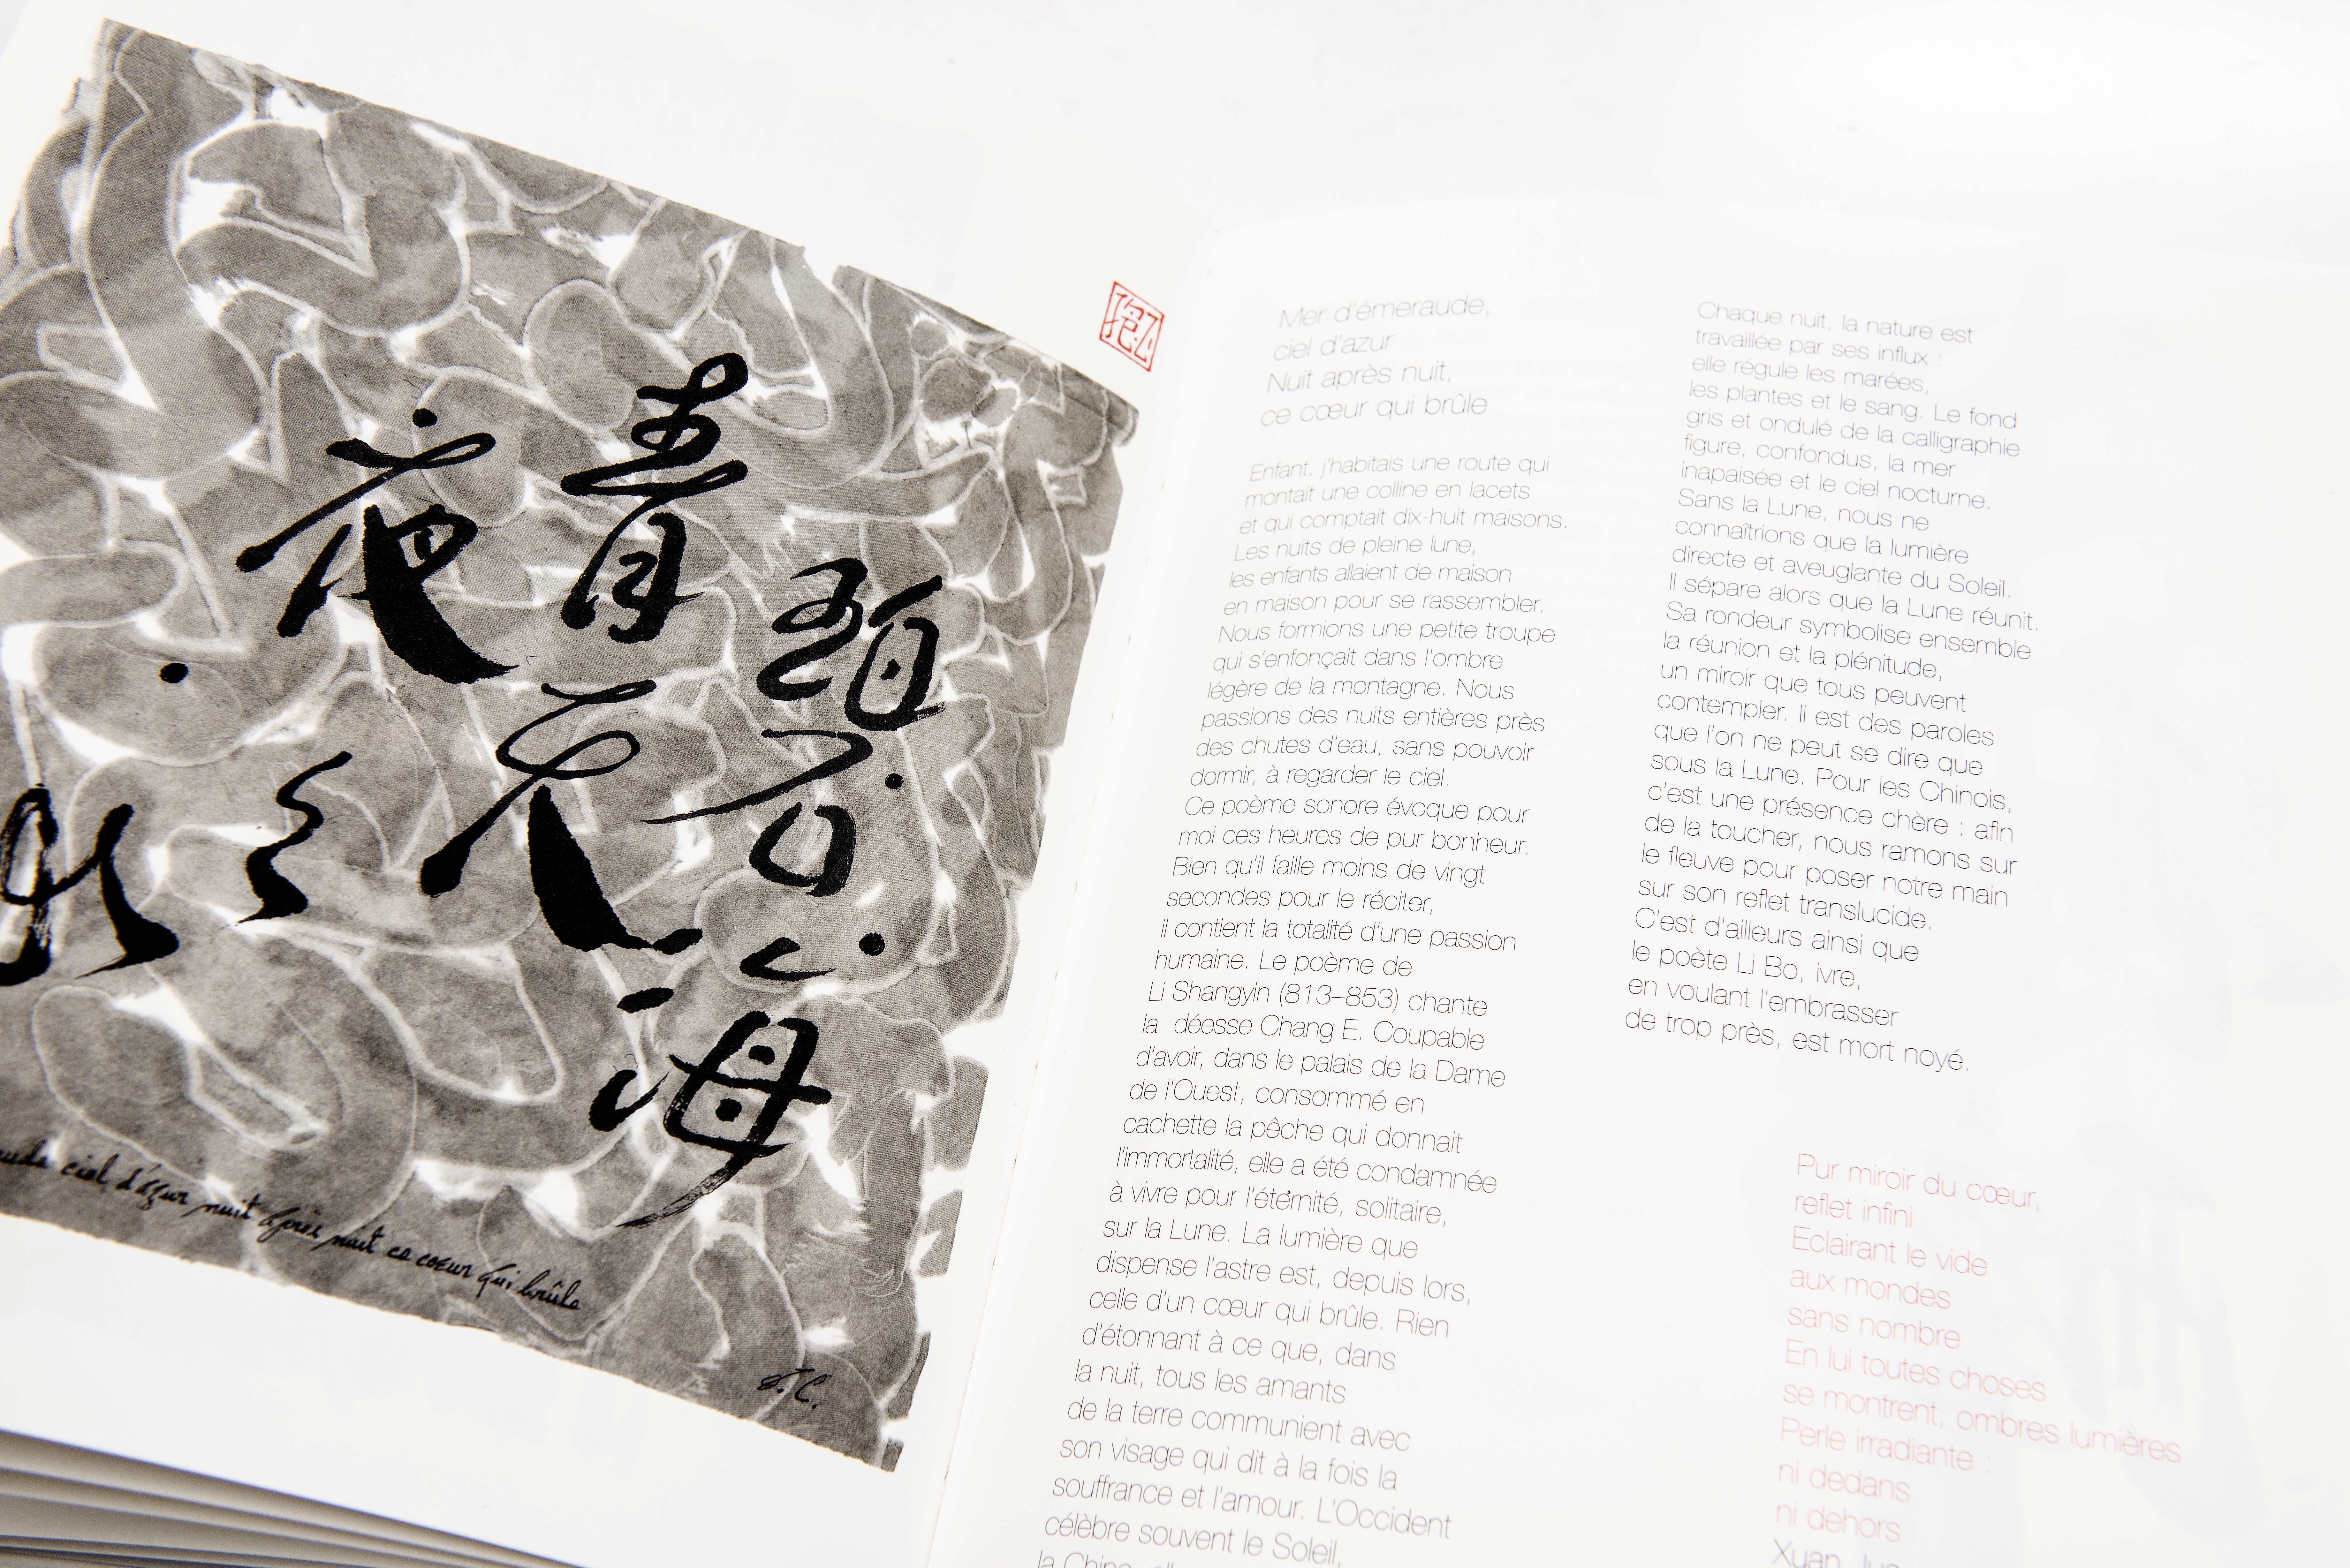 碧海
青天
夜
心
ciel d'azur nuit après nuit ce coeur qui brûle
F. C.
Mer d'émeraude,
ciel d'azur
Nuit après nuit,
ce cœur qui brûle
Enfant, j'habitais une route qui
montait une colline en lacets
et qui comptait dix-huit maisons.
Les nuits de pleine lune,
les enfants allaient de maison
en maison pour se rassembler.
Nous formions une petite troupe
qui s'enfonçait dans l'ombre
légère de la montagne. Nous
passions des nuits entières près
des chutes d'eau, sans pouvoir
dormir, à regarder le ciel.
Ce poème sonore évoque pour
moi ces heures de pur bonheur.
Bien qu'il faille moins de vingt
secondes pour le réciter,
il contient la totalité d'une passion
humaine. Le poème de
Li Shangyin (813–853) chante
la déesse Chang E. Coupable
d'avoir, dans le palais de la Dame
de l'Ouest, consommé en
cachette la pêche qui donnait
l'immortalité, elle a été condamnée
à vivre pour l'éternité, solitaire,
sur la Lune. La lumière que
dispense l'astre est, depuis lors,
celle d'un cœur qui brûle. Rien
d'étonnant à ce que, dans
la nuit, tous les amants
de la terre communient avec
son visage qui dit à la fois la
souffrance et l'amour. L'Occident
célèbre souvent le Soleil,
la Chine
Chaque nuit, la nature est
travaillée par ses influx :
elle régule les marées,
les plantes et le sang. Le fond
gris et ondulé de la calligraphie
figure, confondus, la mer
inapaisée et le ciel nocturne.
Sans la Lune, nous ne
connaîtrions que la lumière
directe et aveuglante du Soleil.
Il sépare alors que la Lune réunit.
Sa rondeur symbolise ensemble
la réunion et la plénitude,
un miroir que tous peuvent
contempler. Il est des paroles
que l'on ne peut se dire que
sous la Lune. Pour les Chinois,
c'est une présence chère : afin
de la toucher, nous ramons sur
le fleuve pour poser notre main
sur son reflet translucide.
C'est d'ailleurs ainsi que
le poète Li Bo, ivre,
en voulant l'embrasser
de trop près, est mort noyé.
Pur miroir du cœur,
reflet infini
Eclairant le vide
aux mondes
sans nombre
En lui toutes choses
se montrent, ombres lumières
Perle irradiante :
ni dedans
ni dehors
Xuan Jue